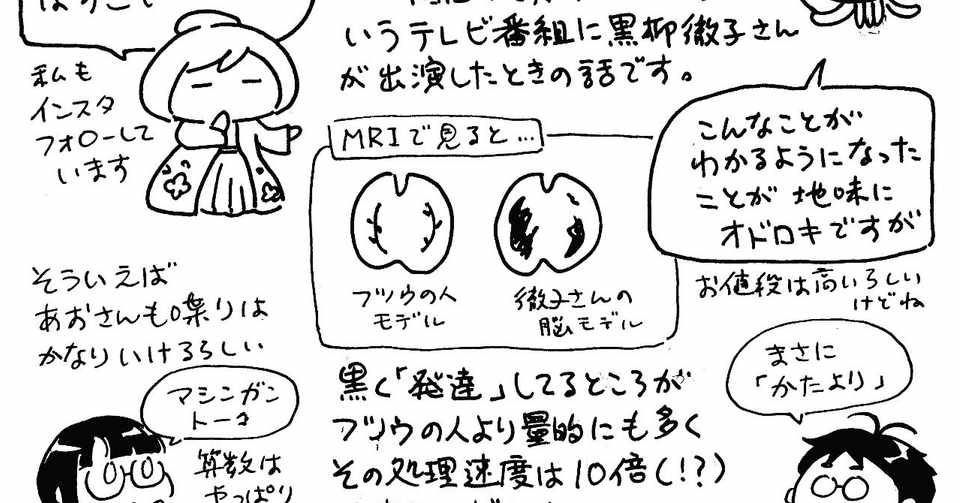 私も
インスタ
フォローして
います
いうテレビ番組に黒柳徹子さん
が出演したときの話です。
MRIで見ると…
フツウの人
モデル
徹子さんの
脳モデル
こんなことが
わかるようになった
ことが地味に
オドロキですが
お値段は高いらしい
けどね
そういえば
あおさんも喋りは
かなりいけるらしい
マシンガン
トーク
算数は
やっぱり
黒く「発達」してるところが
フツウの人より量的にも多く
その処理速度は10倍(!?)
まさに
「かたより」